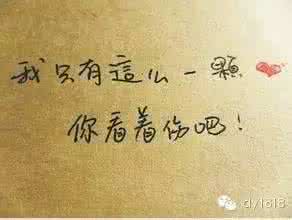 我只有這么一顆❤
你看着伤吧!
dy1618